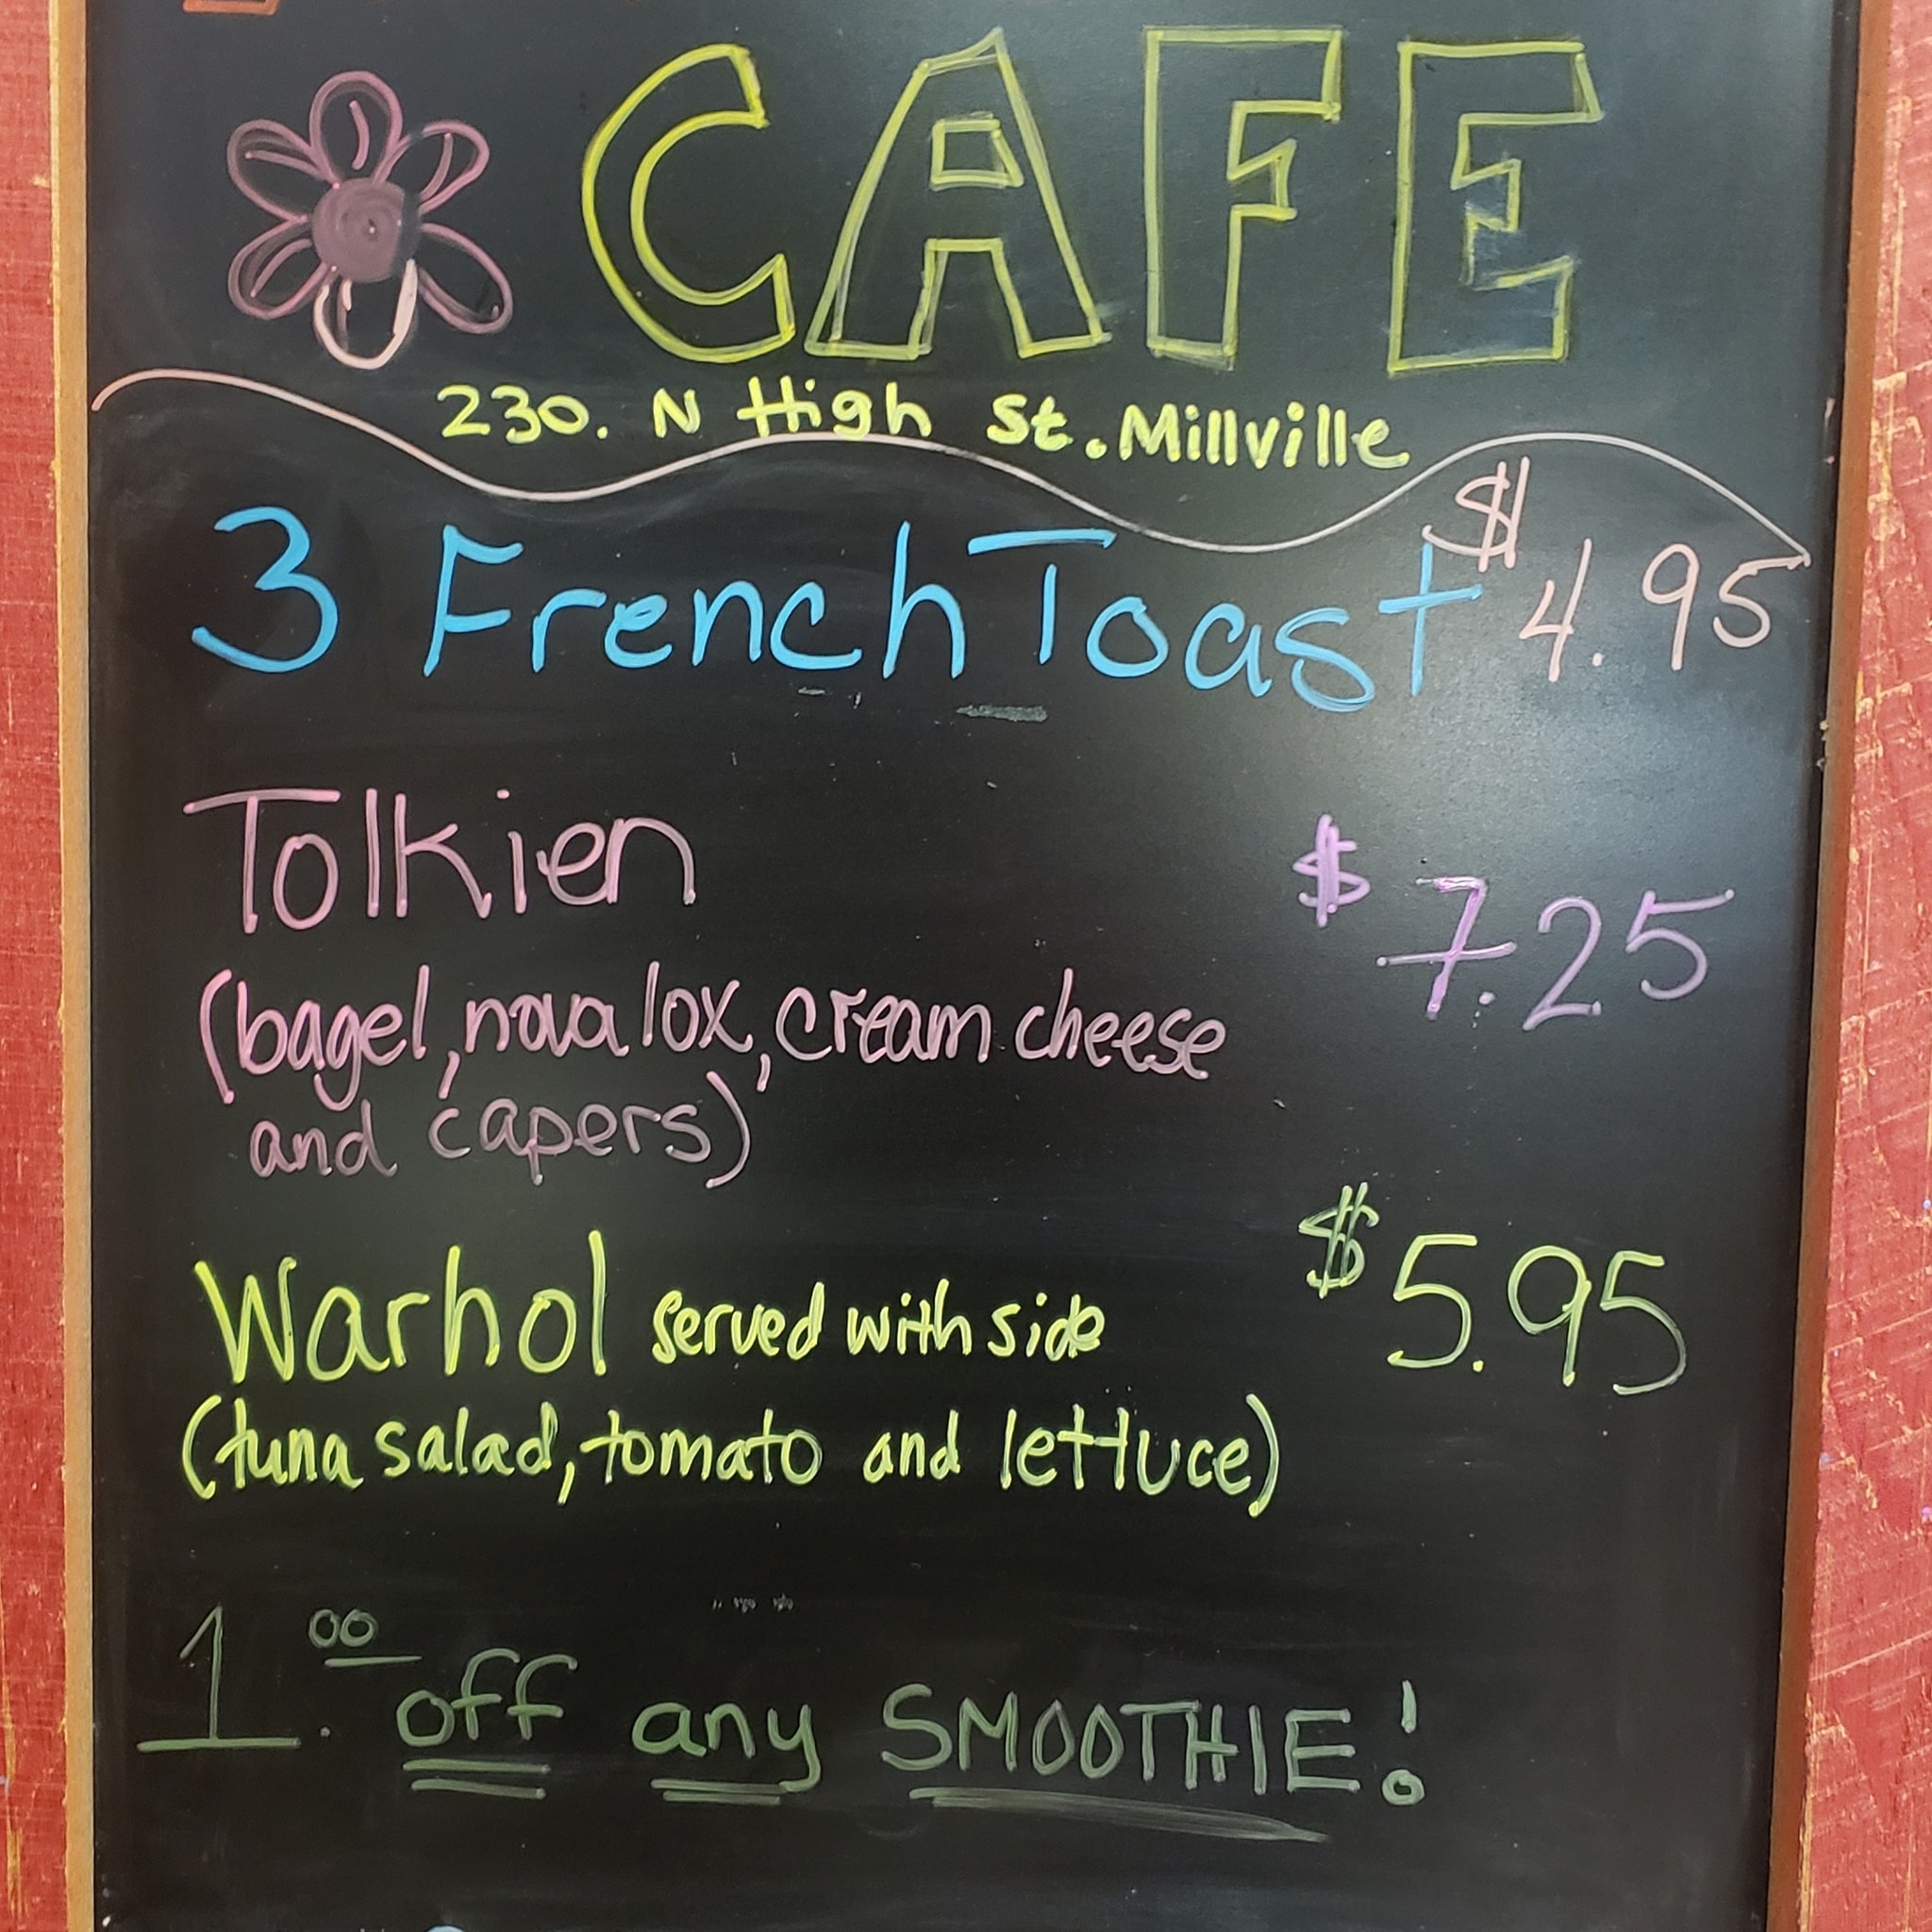 CAFE
230. N High St. Millville
3 French Toast $4.95
Tolkien $7.25
(bagel, nova lox, cream cheese
and capers)
Warhol served with side $5.95
(tuna salad, tomato and lettuce)
1.00 off any SMOOTHIE!